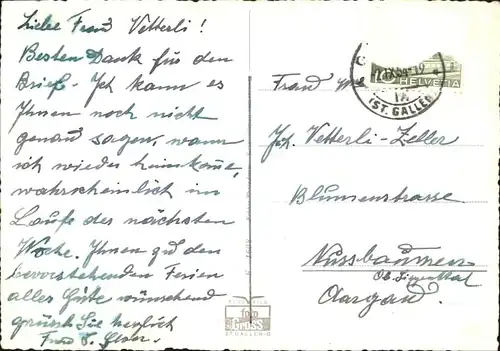 Liebe Frau Vetterli!
Besten Dank für den
Brief. Ich kann es
Ihnen noch nicht
genau sagen, wann
ich wieder heimkomme,
wahrscheinlich im
Laufe des nächsten
Woche. Ihnen zu den
bevorstehenden Ferien
alles Gute wünschend
grüsst Sie herzlich
Frau
Frau
Joh. Vetterli-Zeller
Blumenstrasse
Nussbaumen
Ob. Siggenthal
Aargau.
HELVETIA
(ST. GALLEN)
foto
Gross
ST. GALLEN